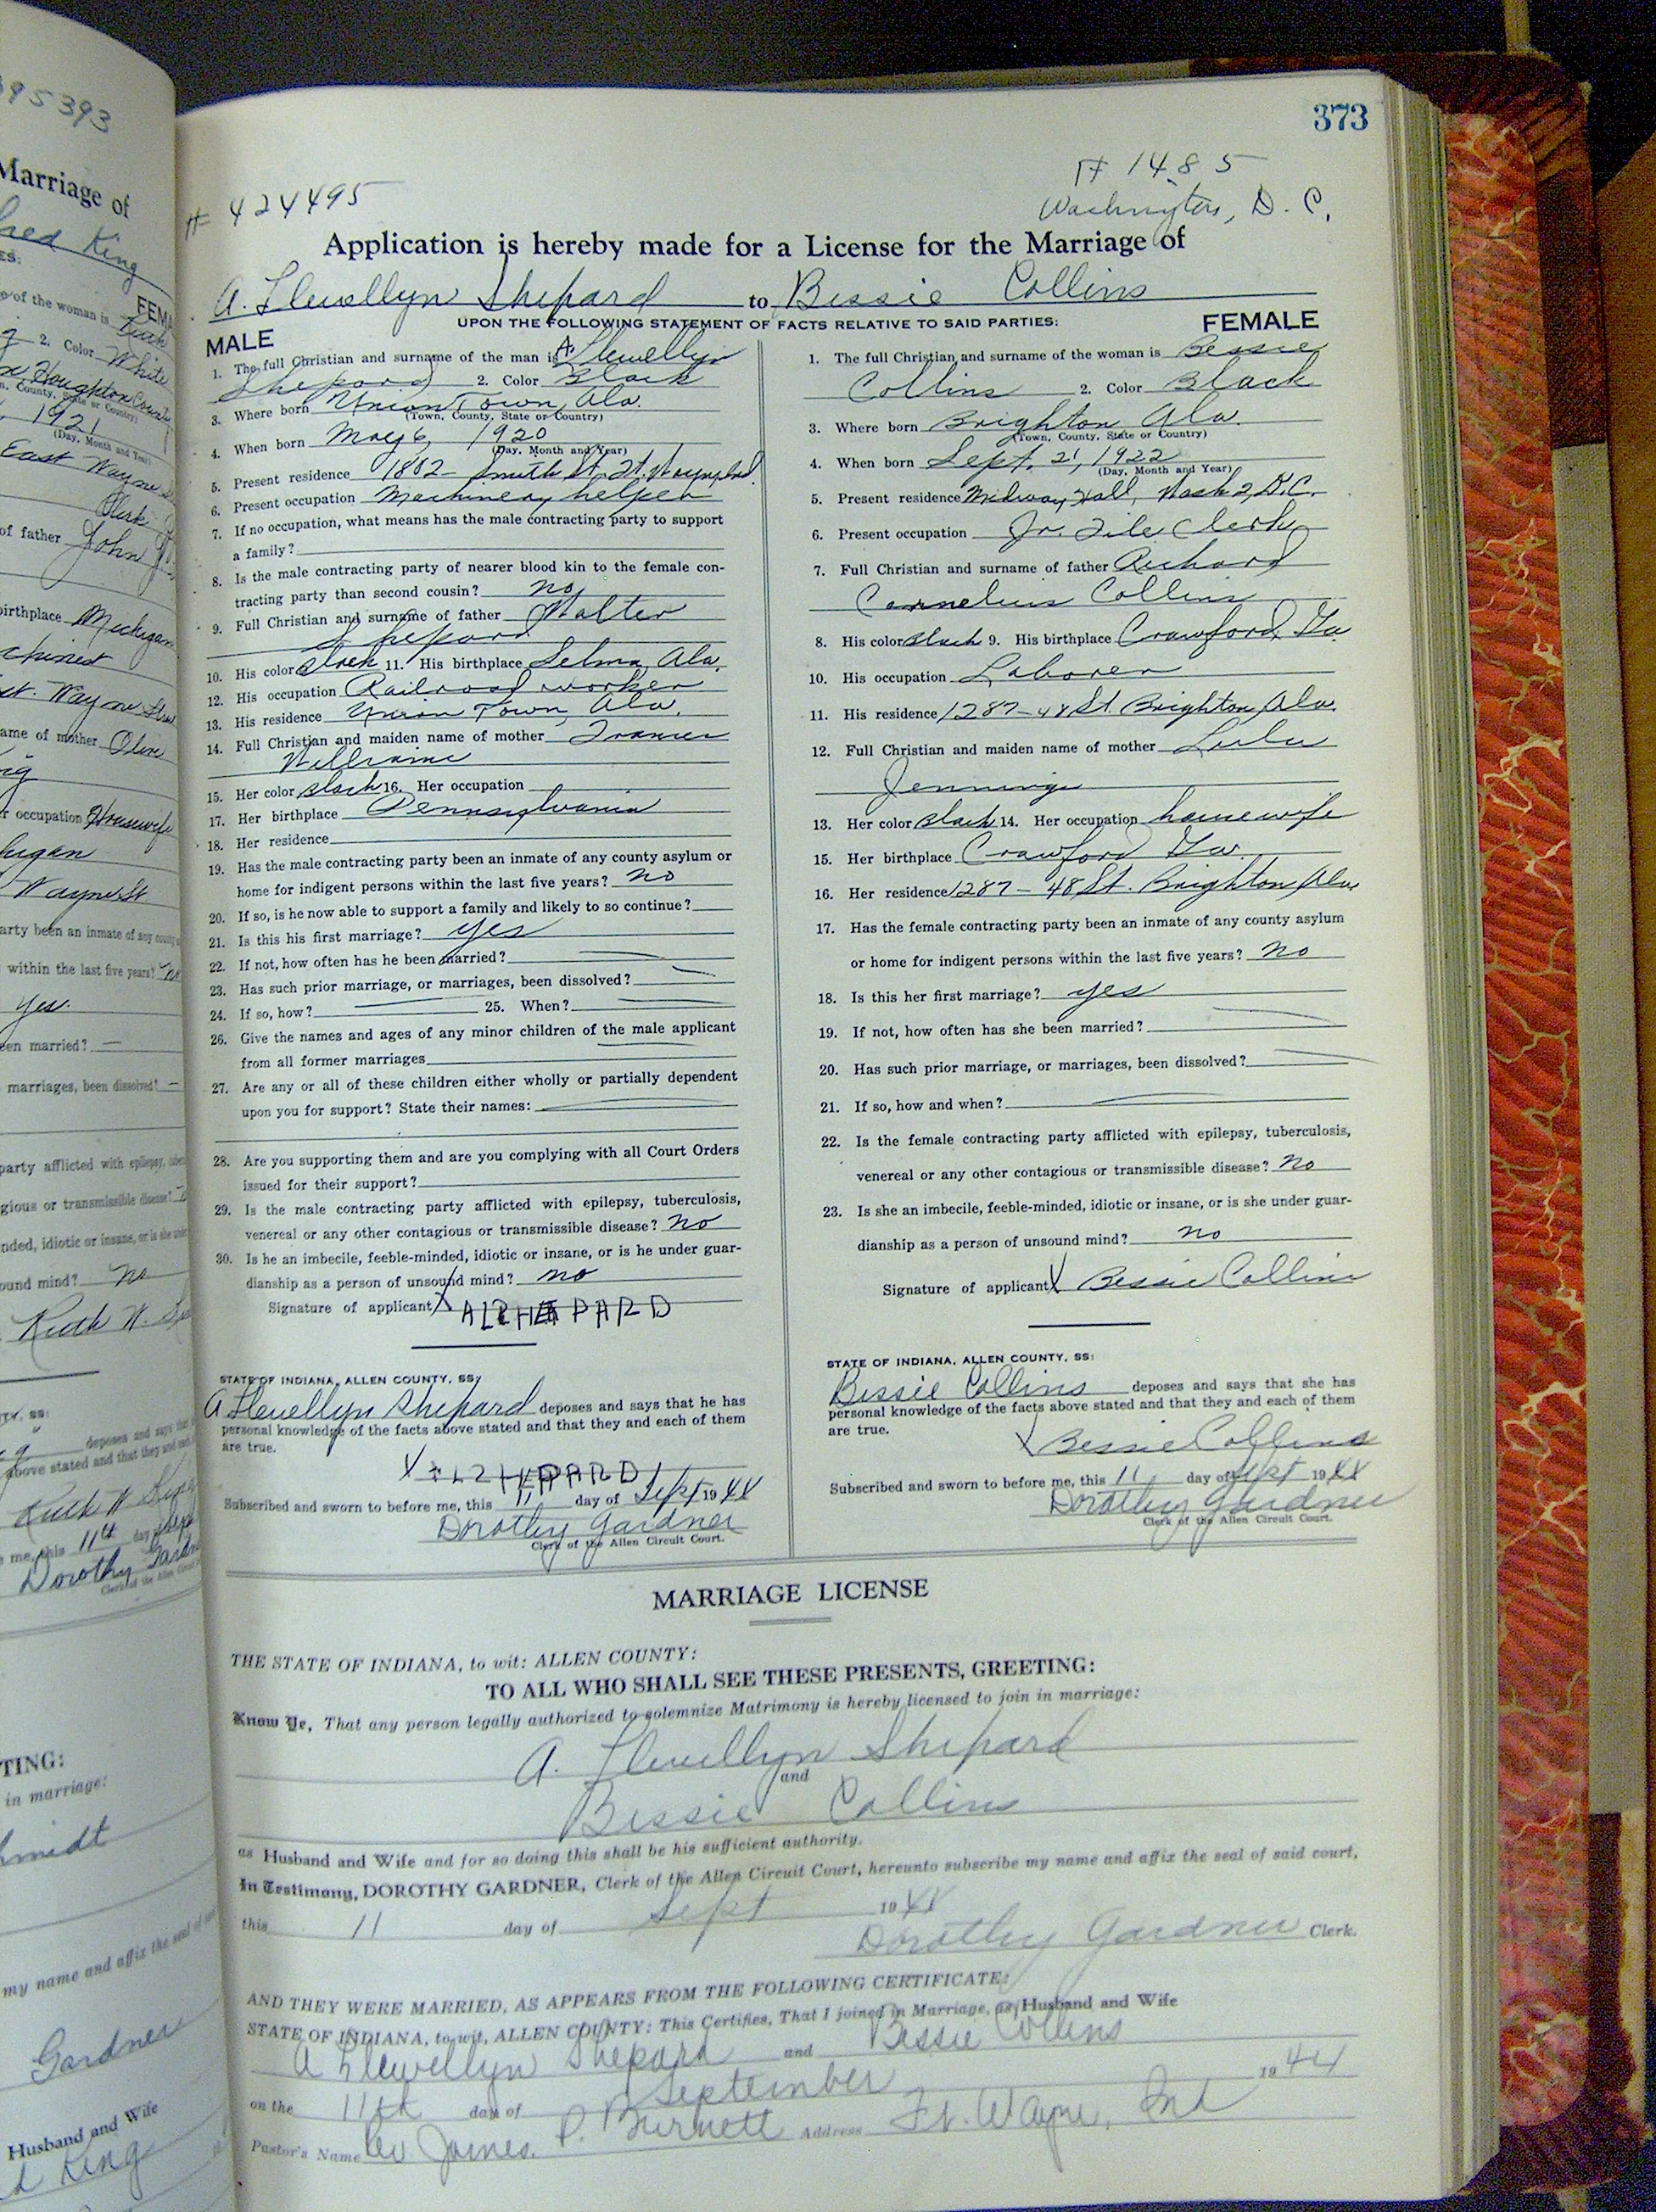 373
# 424495
# 1485
Washington, D. C.
Application is hereby made for a License for the Marriage of
A. Llewellyn Shepard to Bessie Collins
UPON THE FOLLOWING STATEMENT OF FACTS RELATIVE TO SAID PARTIES:
MALE
1. The full Christian and surname of the man is A. Llewellyn
Shepard 2. Color Black
3. Where born Union Town, Ala.
(Town, County, State or Country)
4. When born May 6, 1920
(Day, Month and Year)
5. Present residence 1802 - Smith St. Ft. Wayne, Ind.
6. Present occupation Machinery helper
7. If no occupation, what means has the male contracting party to support
a family?
8. Is the male contracting party of nearer blood kin to the female con-
tracting party than second cousin? no
9. Full Christian and surname of father Walter
Shepard
10. His color Black 11. His birthplace Selma, Ala.
12. His occupation Railroad worker
13. His residence Union Town, Ala.
14. Full Christian and maiden name of mother Frances
Williams
15. Her color Black 16. Her occupation
17. Her birthplace Pennsylvania
18. Her residence
19. Has the male contracting party been an inmate of any county asylum or
home for indigent persons within the last five years? no
20. If so, is he now able to support a family and likely to so continue?
21. Is this his first marriage? yes
22. If not, how often has he been married?
23. Has such prior marriage, or marriages, been dissolved?
24. If so, how? 25. When?
26. Give the names and ages of any minor children of the male applicant
from all former marriages
27. Are any or all of these children either wholly or partially dependent
upon you for support? State their names:
28. Are you supporting them and are you complying with all Court Orders
issued for their support?
29. Is the male contracting party afflicted with epilepsy, tuberculosis,
venereal or any other contagious or transmissible disease? no
30. Is he an imbecile, feeble-minded, idiotic or insane, or is he under guar-
dianship as a person of unsound mind? no
Signature of applicant X
STATE OF INDIANA, ALLEN COUNTY, SS:
A Llewellyn Shepard deposes and says that he has
personal knowledge of the facts above stated and that they and each of them
are true.
X
Subscribed and sworn to before me, this 11 day of Sept 1944
Dorothy Gardner
Clerk of the Allen Circuit Court.
FEMALE
1. The full Christian and surname of the woman is Bessie
Collins 2. Color Black
3. Where born Brighton Ala.
(Town, County, State or Country)
4. When born Sept. 21, 1922
(Day, Month and Year)
5. Present residence Midway Hall, Wash 2, D.C.
6. Present occupation Jr. File Clerk
7. Full Christian and surname of father Richard
Cornelius Collins
8. His color Black 9. His birthplace Crawford, Ga
10. His occupation Laborer
11. His residence 1287 - 48 St. Brighton, Ala.
12. Full Christian and maiden name of mother Lula
Jennings
13. Her color Black 14. Her occupation housewife
15. Her birthplace Crawford Ga.
16. Her residence 1287 - 48 St. Brighton Ala
17. Has the female contracting party been an inmate of any county asylum
or home for indigent persons within the last five years? no
18. Is this her first marriage? yes
19. If not, how often has she been married?
20. Has such prior marriage, or marriages, been dissolved?
21. If so, how and when?
22. Is the female contracting party afflicted with epilepsy, tuberculosis,
venereal or any other contagious or transmissible disease? no
23. Is she an imbecile, feeble-minded, idiotic or insane, or is she under guar-
dianship as a person of unsound mind? no
Signature of applicant X Bessie Collins
STATE OF INDIANA, ALLEN COUNTY, SS:
Bessie Collins deposes and says that she has
personal knowledge of the facts above stated and that they and each of them
are true.
X Bessie Collins
Subscribed and sworn to before me, this 11 day of Sept 1944
Dorothy Gardner
Clerk of the Allen Circuit Court.
MARRIAGE LICENSE
THE STATE OF INDIANA, to wit: ALLEN COUNTY:
TO ALL WHO SHALL SEE THESE PRESENTS, GREETING:
Know Ye, That any person legally authorized to solemnize Matrimony is hereby licensed to join in marriage:
A. Llewellyn Shepard
and
Bessie Collins
as Husband and Wife and for so doing this shall be his sufficient authority.
In Testimony, DOROTHY GARDNER, Clerk of the Allen Circuit Court, hereunto subscribe my name and affix the seal of said court,
this 11 day of Sept 1944
Dorothy Gardner Clerk.
AND THEY WERE MARRIED, AS APPEARS FROM THE FOLLOWING CERTIFICATE:
STATE OF INDIANA, to wit, ALLEN COUNTY: This Certifies, That I joined in Marriage, as Husband and Wife
A Llewellyn Shepard and Bessie Collins
on the 11th day of September 1944
Pastor's Name Rev James. P. Burnett Address Ft. Wayne, Ind